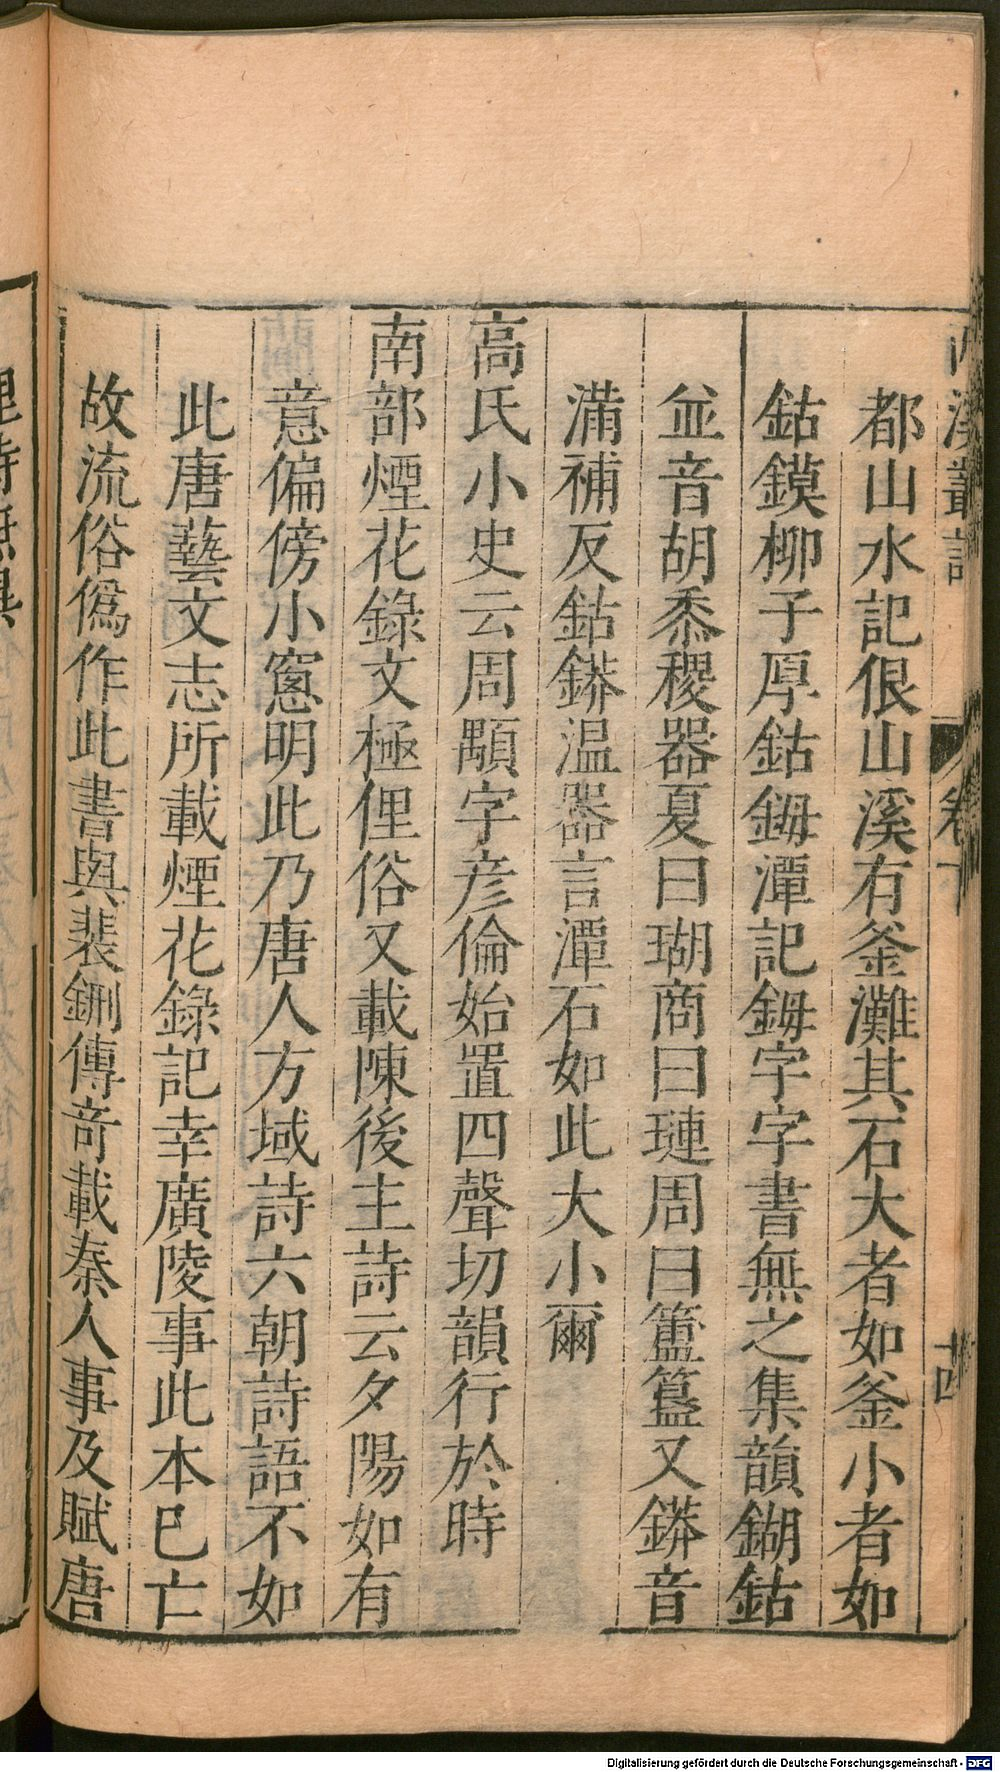 都山水記佷山溪有釜灘其石大者如釜小者如
鈷鏌柳子厚鈷鉧潭記鉧字字書無之集韻鍸鈷
並音胡黍稷器夏曰瑚商曰璉周曰簠簋又鏻音
滿補反鈷鏻温器言潭石如此大小爾
高氏小史云周顒字彦倫始置四聲切韻行於時
南部煙花錄文極俚俗又載陳後主詩云夕陽如有
意偏傍小窻明此乃唐人方域詩六朝詩語不如
此唐藝文志所載煙花錄記幸廣陵事此本已亡
故流俗僞作此書與裴鉶傳竒載秦人事及賦唐
卷下
十四
Digitalisierung gefördert durch die Deutsche Forschungsgemeinschaft - DFG